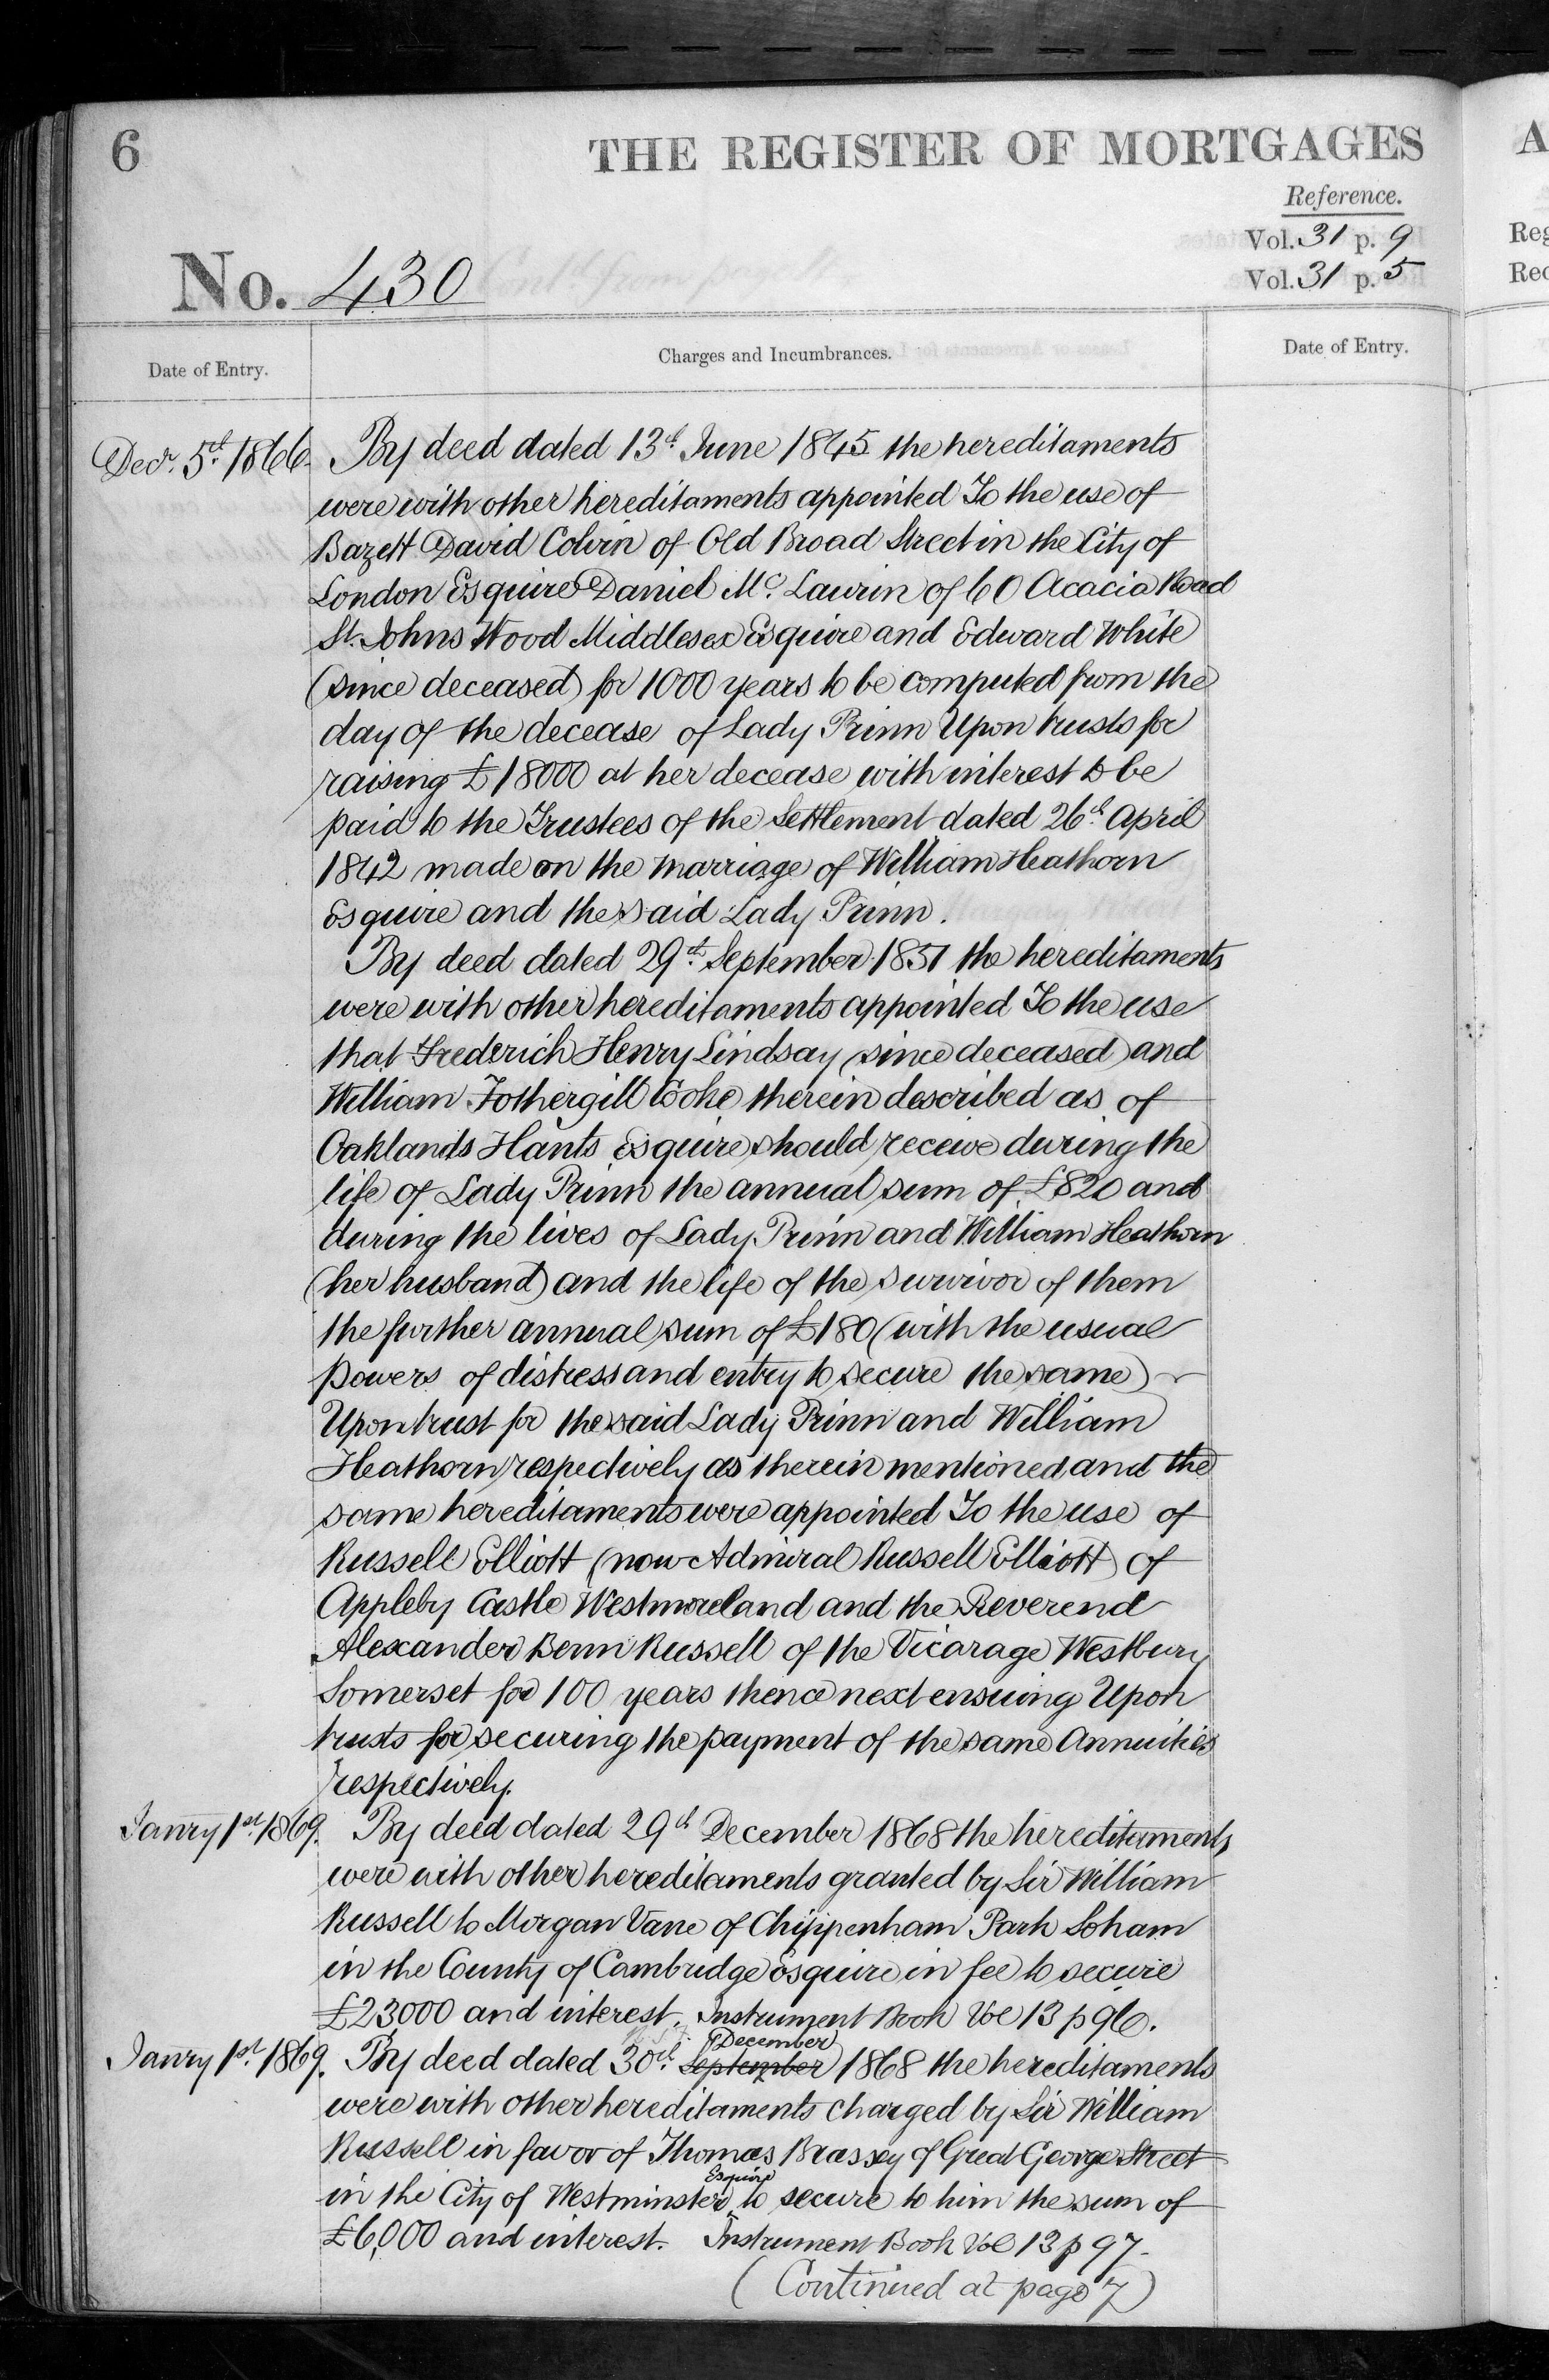 6
THE REGISTER OF MORTGAGES
Reference.
Vol. 31 p. 9
Vol. 31 p. 5
No. 430
Date of Entry.
Charges and Incumbrances.
Date of Entry.
Decr. 5th 1866.
By deed dated 13th June 1845 the hereditaments
were with other hereditaments appointed To the use of
Bazett David Colvin of Old Broad Street in the City of
London Esquire Daniel Mc. Laurin of 60 Acacia Road
St. Johns Wood Middlesex Esquire and Edward White
(since deceased) for 1000 years to be computed from the
day of the decease of Lady Prinn Upon trusts for
raising £18000 at her decease with interest to be
paid to the Trustees of the Settlement dated 26th April
1842 made on the marriage of William Heathorn
Esquire and the said Lady Prinn.
By deed dated 29th September 1851 the hereditaments
were with other hereditaments appointed To the use
that Frederich Henry Lindsay (since deceased) and
William Fothergill Cooke therein described as of
Oaklands Hants Esquire should receive during the
life of Lady Prinn the annual sum of £820 and
during the lives of Lady Prinn and William Heathorn
(her husband) and the life of the survivor of them
the further annual sum of £180 (with the usual
powers of distress and entry to secure the same)
Upon trust for the said Lady Prinn and William
Heathorn respectively as therein mentioned and the
same hereditaments were appointed To the use of
Russell Elliott (now Admiral Russell Elliott) of
Appleby Castle Westmoreland and the Reverend
Alexander Benn Russell of the Vicarage Westbury
Somerset for 100 years thence next ensuing Upon
trusts for securing the payment of the same Annuities
respectively.
Janry 1st 1869.
By deed dated 29th December 1868 the hereditaments
were with other hereditaments granted by Sir William
Russell to Morgan Vane of Chippenham Park Soham
in the County of Cambridge Esquire in fee to secure
£23000 and interest. Instrument Book Vol 13 p 96.
Janry 1st 1869.
December
By deed dated 30th September 1868 the hereditaments
were with other hereditaments charged by Sir William
Russell in favor of Thomas Brassey of Great George Street
Esquire
in the City of Westminster to secure to him the sum of
£6,000 and interest. Instrument Book Vol 13 p 97.
(Continued at page 7)
A
Reg
Rec